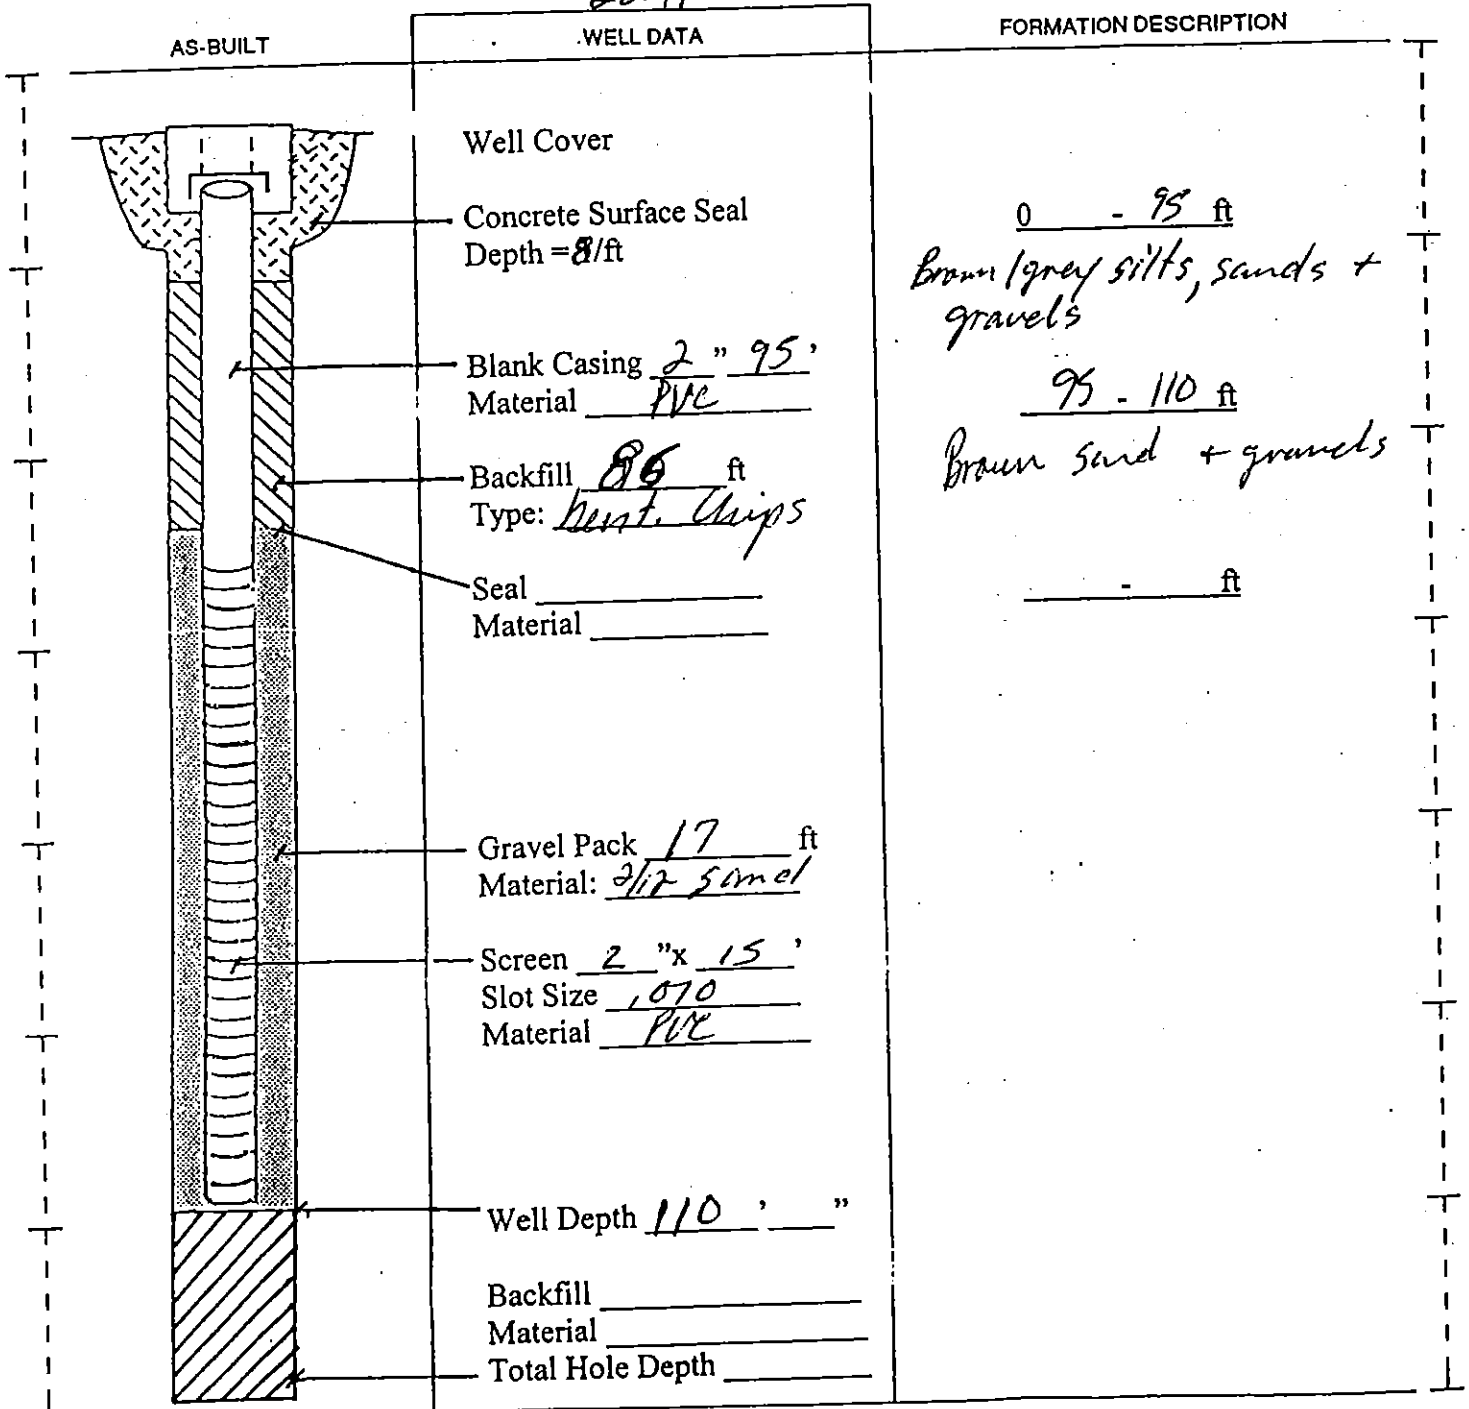 AS-BUILT
WELL DATA
FORMATION DESCRIPTION
Well Cover
Concrete Surface Seal
Depth = 8/ft
Blank Casing 2 " 95 '
Material PVC
Backfill 86 ft
Type: bent. Chips
Seal
Material
Gravel Pack 17 ft
Material: 2/12 sand
Screen 2 "x 15 '
Slot Size .010
Material PVC
Well Depth 110 ' "
Backfill
Material
Total Hole Depth
0 - 95 ft
Brown/grey silts, sands +
gravels
95 - 110 ft
Brown sand + gravels
- ft